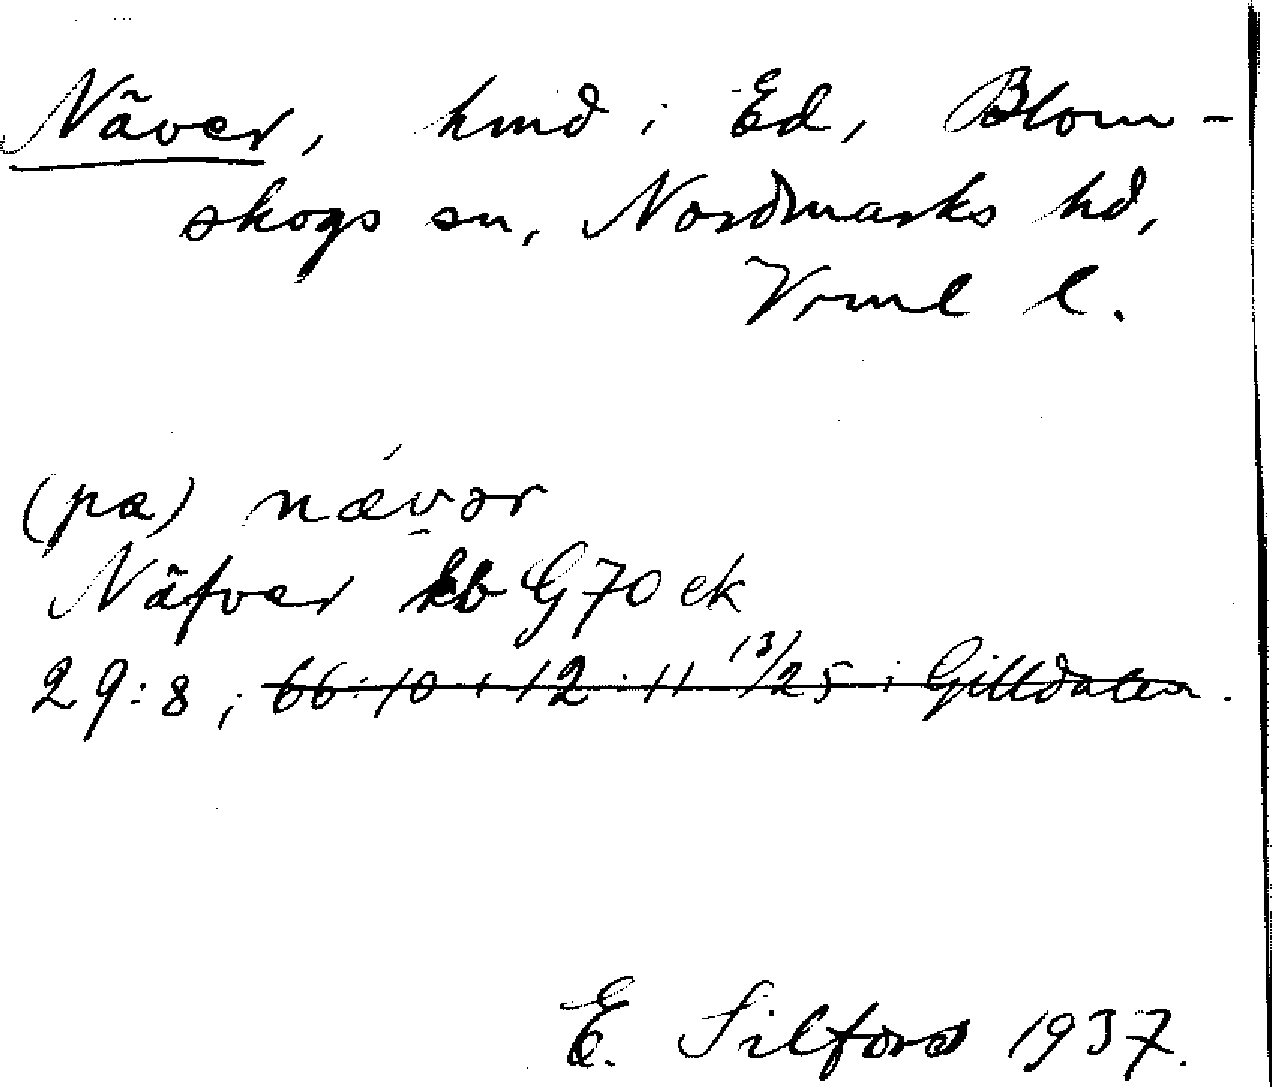 Näver, hmd i Ed, Blom-
skogs sn, Nordmarks hd,
Vrml l.
(pa) nævər
Näfver kb G70 ek
29:8; 66:10 i 12 : 11 13/25 i Gilldalen.
E. Silfors 1937.